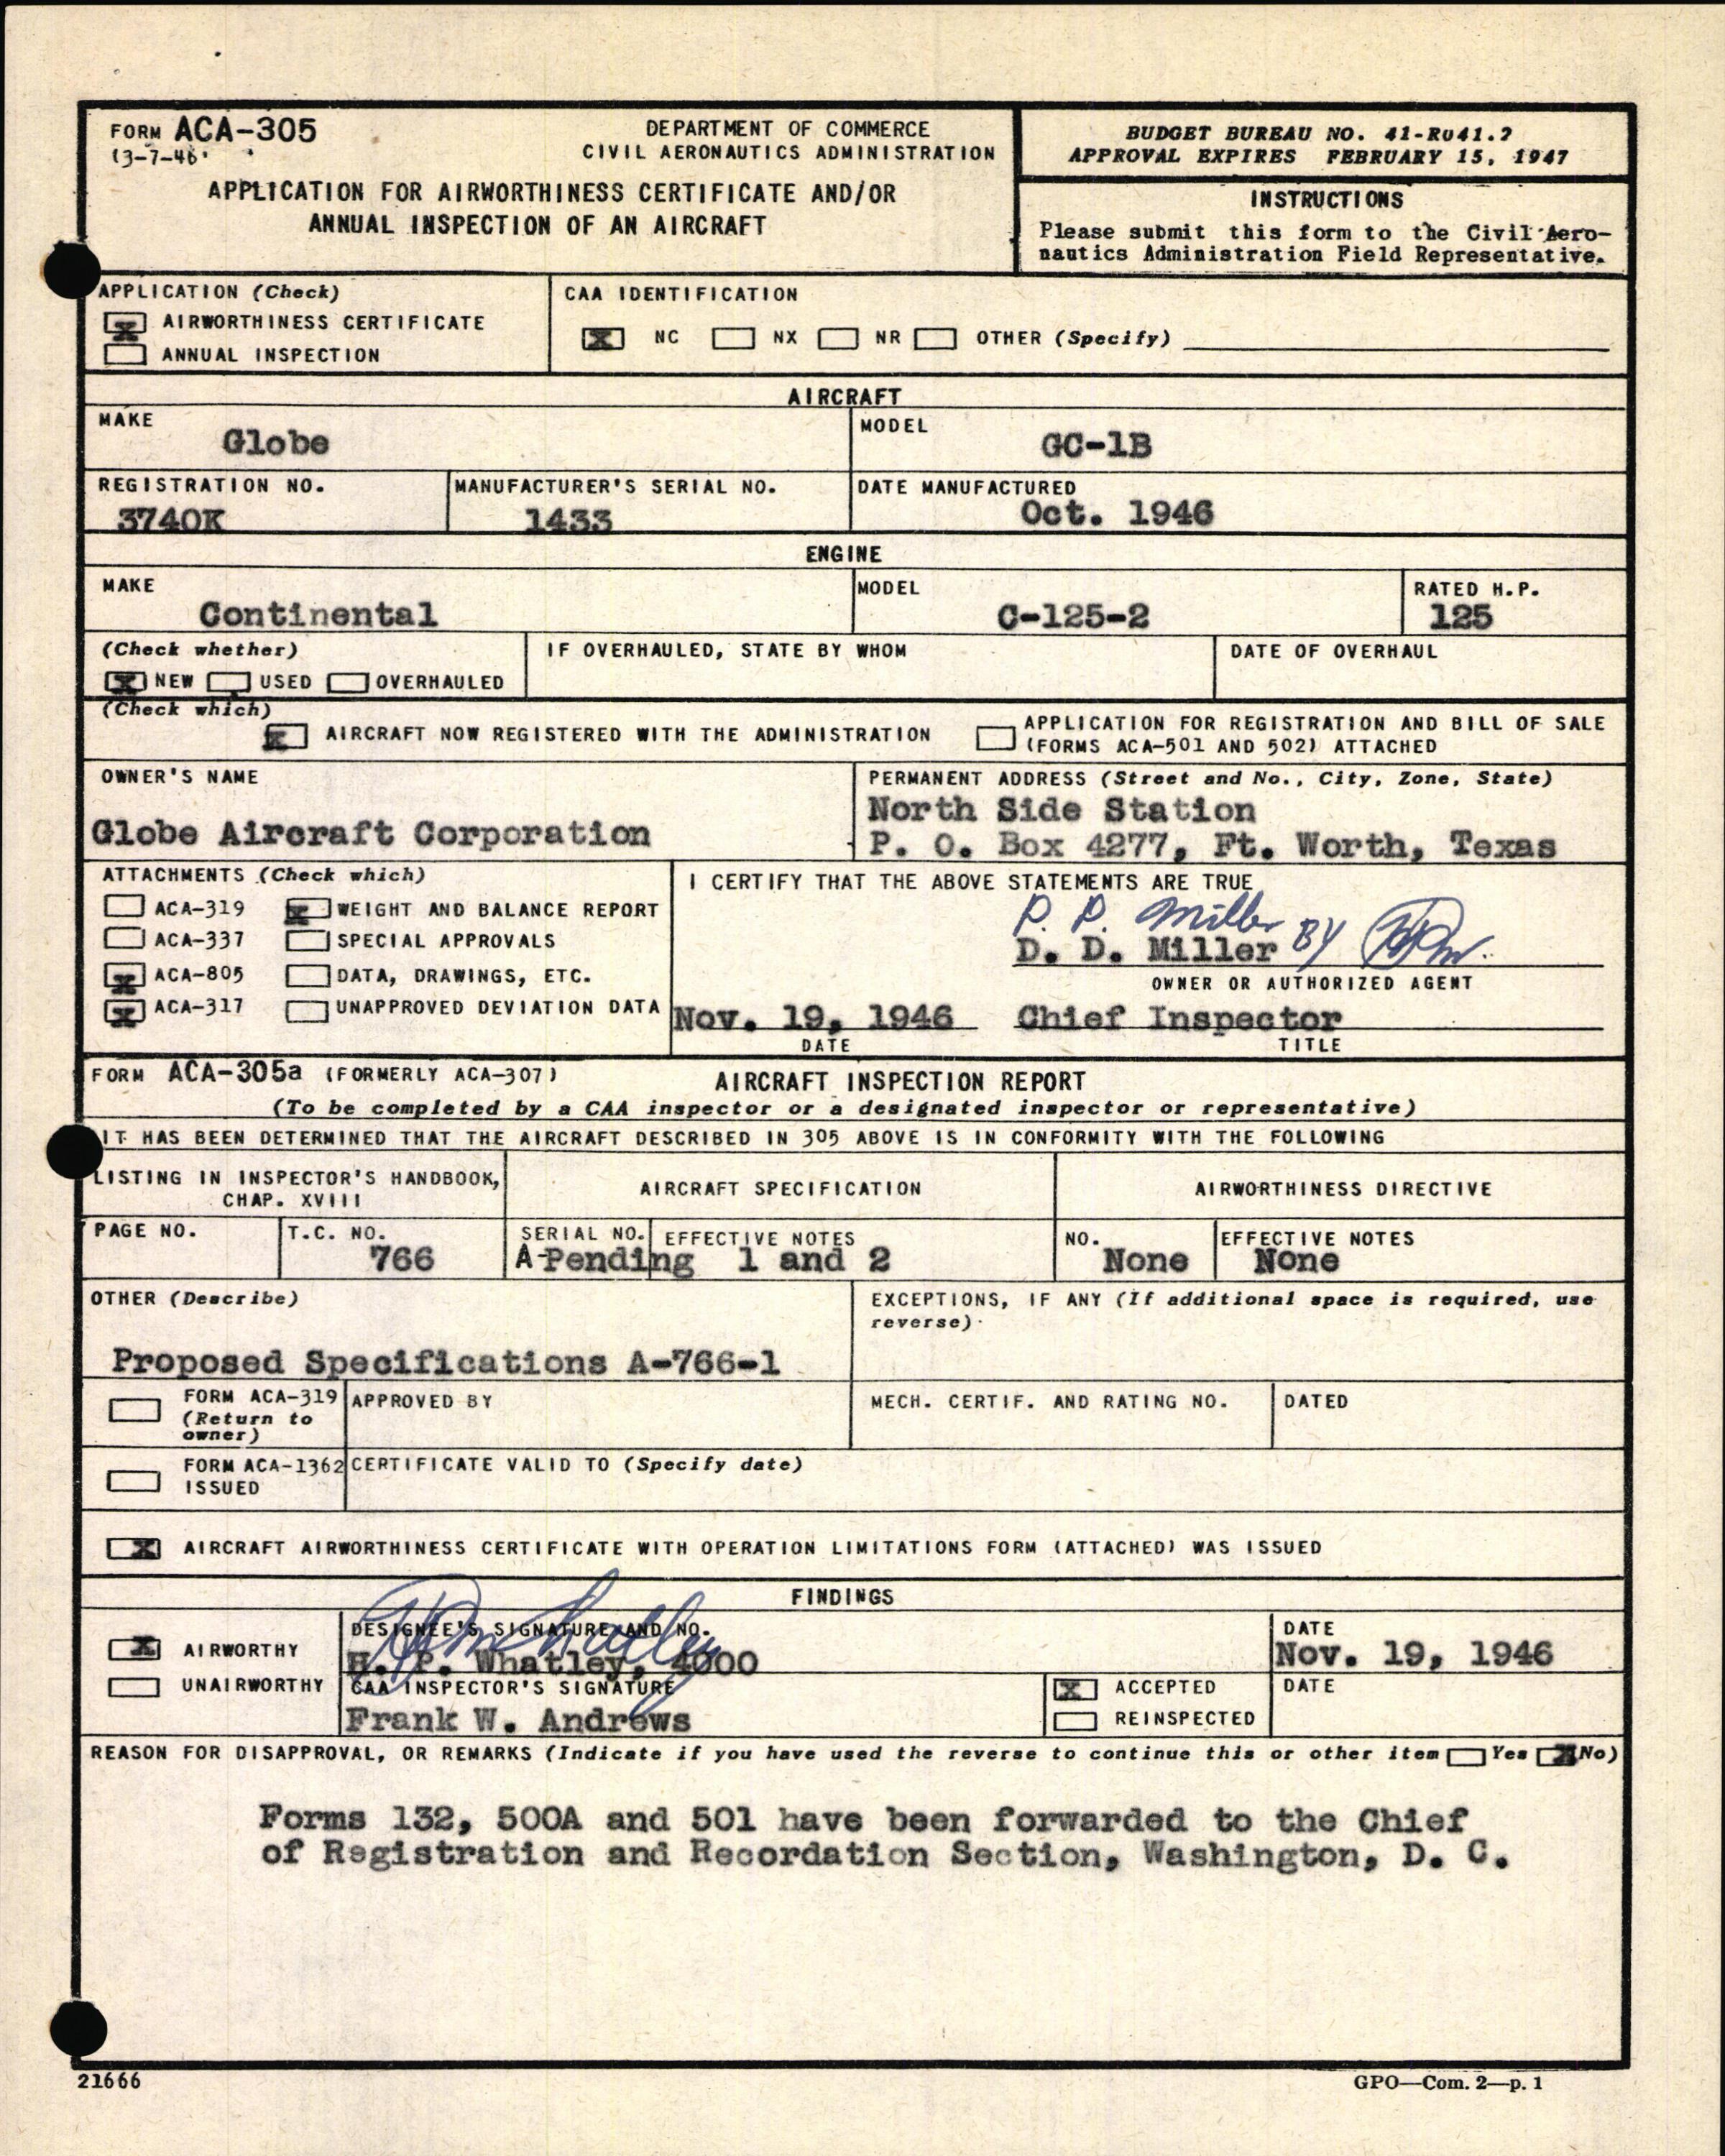 FORM ACA-305
(3-7-46)
DEPARTMENT OF COMMERCE
CIVIL AERONAUTICS ADMINISTRATION
APPLICATION FOR AIRWORTHINESS CERTIFICATE AND/OR
ANNUAL INSPECTION OF AN AIRCRAFT
BUDGET BUREAU NO. 41-R041.2
APPROVAL EXPIRES FEBRUARY 15, 1947
INSTRUCTIONS
Please submit this form to the Civil Aero-
nautics Administration Field Representative.
APPLICATION (Check)
X AIRWORTHINESS CERTIFICATE
ANNUAL INSPECTION
CAA IDENTIFICATION
X NC NX NR OTHER (Specify)
AIRCRAFT
MAKE
Globe
MODEL
GC-1B
REGISTRATION NO.
3740K
MANUFACTURER'S SERIAL NO.
1433
DATE MANUFACTURED
Oct. 1946
ENGINE
MAKE
Continental
MODEL
C-125-2
RATED H.P.
125
(Check whether)
X NEW USED OVERHAULED
IF OVERHAULED, STATE BY WHOM
DATE OF OVERHAUL
(Check which)
X AIRCRAFT NOW REGISTERED WITH THE ADMINISTRATION
APPLICATION FOR REGISTRATION AND BILL OF SALE
(FORMS ACA-501 AND 502) ATTACHED
OWNER'S NAME
Globe Aircraft Corporation
PERMANENT ADDRESS (Street and No., City, Zone, State)
North Side Station
P. O. Box 4277, Ft. Worth, Texas
ATTACHMENTS (Check which)
ACA-319 X WEIGHT AND BALANCE REPORT
ACA-337 SPECIAL APPROVALS
X ACA-805 DATA, DRAWINGS, ETC.
X ACA-317 UNAPPROVED DEVIATION DATA
I CERTIFY THAT THE ABOVE STATEMENTS ARE TRUE
D. D. Miller BY
D. D. Miller
OWNER OR AUTHORIZED AGENT
Nov. 19, 1946 Chief Inspector
DATE TITLE
FORM ACA-305a (FORMERLY ACA-307)
AIRCRAFT INSPECTION REPORT
(To be completed by a CAA inspector or a designated inspector or representative)
IT HAS BEEN DETERMINED THAT THE AIRCRAFT DESCRIBED IN 305 ABOVE IS IN CONFORMITY WITH THE FOLLOWING
LISTING IN INSPECTOR'S HANDBOOK,
CHAP. XVIII
AIRCRAFT SPECIFICATION
AIRWORTHINESS DIRECTIVE
PAGE NO.
T.C. NO.
766
SERIAL NO. EFFECTIVE NOTES
A-Pending 1 and 2
NO.
None
EFFECTIVE NOTES
None
OTHER (Describe)
Proposed Specifications A-766-1
EXCEPTIONS, IF ANY (If additional space is required, use
reverse)
FORM ACA-319
(Return to
owner)
APPROVED BY
MECH. CERTIF. AND RATING NO.
DATED
FORM ACA-1362
ISSUED
CERTIFICATE VALID TO (Specify date)
X AIRCRAFT AIRWORTHINESS CERTIFICATE WITH OPERATION LIMITATIONS FORM (ATTACHED) WAS ISSUED
FINDINGS
X AIRWORTHY
UNAIRWORTHY
DESIGNEE'S SIGNATURE AND NO.
H. P. Whatley, 4000
DATE
Nov. 19, 1946
CAA INSPECTOR'S SIGNATURE
Frank W. Andrews
X ACCEPTED
REINSPECTED
DATE
REASON FOR DISAPPROVAL, OR REMARKS (Indicate if you have used the reverse to continue this or other item Yes X No)
Forms 132, 500A and 501 have been forwarded to the Chief
of Registration and Recordation Section, Washington, D. C.
21666
GPO—Com. 2—p. 1